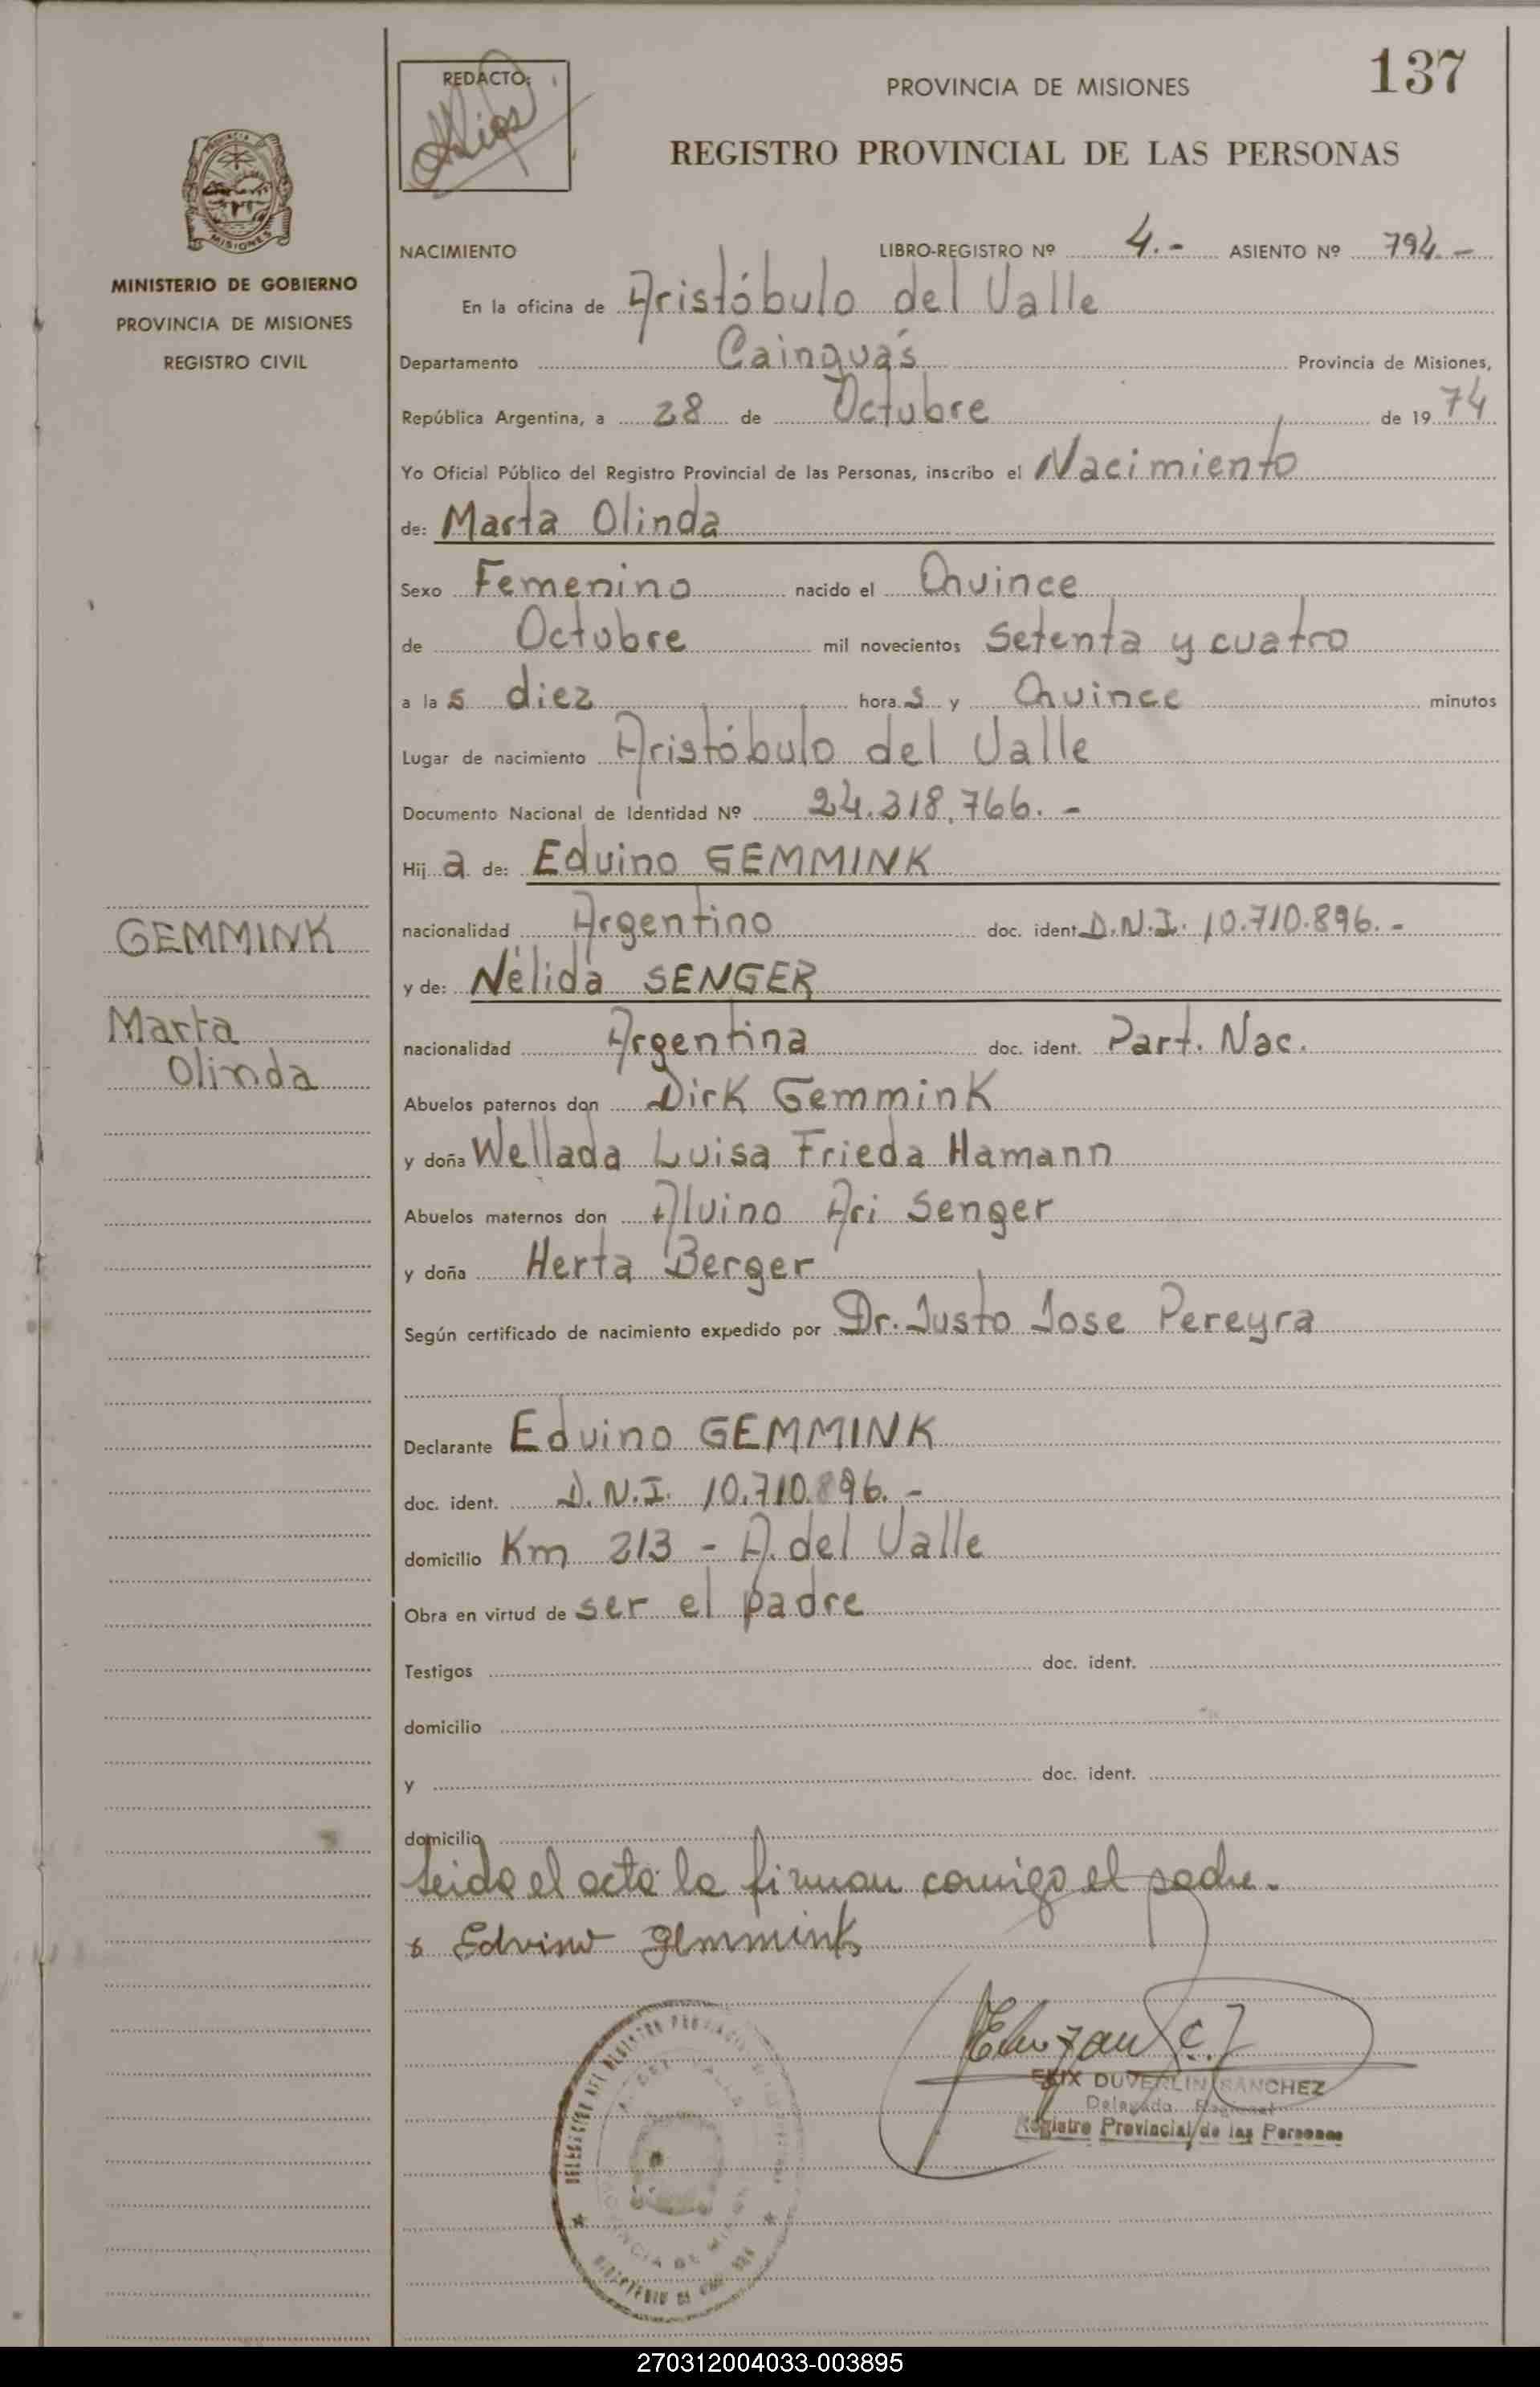 137
REDACTO:
PROVINCIA DE MISIONES
REGISTRO PROVINCIAL DE LAS PERSONAS
MISIONES
MINISTERIO DE GOBIERNO
PROVINCIA DE MISIONES
REGISTRO CIVIL
NACIMIENTO LIBRO-REGISTRO Nº 4.- ASIENTO Nº 794.-
En la oficina de Aristóbulo del Valle
Departamento Cainguás Provincia de Misiones,
República Argentina, a 28 de Octubre de 1974
Yo Oficial Público del Registro Provincial de las Personas, inscribo el Nacimiento
de: Marta Olinda
Sexo Femenino nacido el Quince
de Octubre mil novecientos Setenta y cuatro
a las diez horas y Quince minutos
Lugar de nacimiento Aristóbulo del Valle
Documento Nacional de Identidad Nº 24.318.766.-
Hija de: Eduino GEMMINK
GEMMINK
nacionalidad Argentino doc. ident. D.N.I. 10.710.896.-
y de: Nélida SENGER
Marta
Olinda
nacionalidad Argentina doc. ident. Part. Nac.
Abuelos paternos don Dirk Gemmink
y doña Wellada Luisa Frieda Hamann
Abuelos maternos don Aluino Ari Senger
y doña Herta Berger
Según certificado de nacimiento expedido por Dr. Justo Jose Pereyra
Declarante Eduino GEMMINK
doc. ident. D.N.I. 10.710.896.-
domicilio Km 213 - A. del Valle
Obra en virtud de ser el padre
Testigos doc. ident.
domicilio
y doc. ident.
domicilio
Leida el acta la firman comigo el padre.
Edvino Gemmink
DUVERLIN SANCHEZ
Delegado Regional
Registro Provincial de las Personas
270312004033-003895